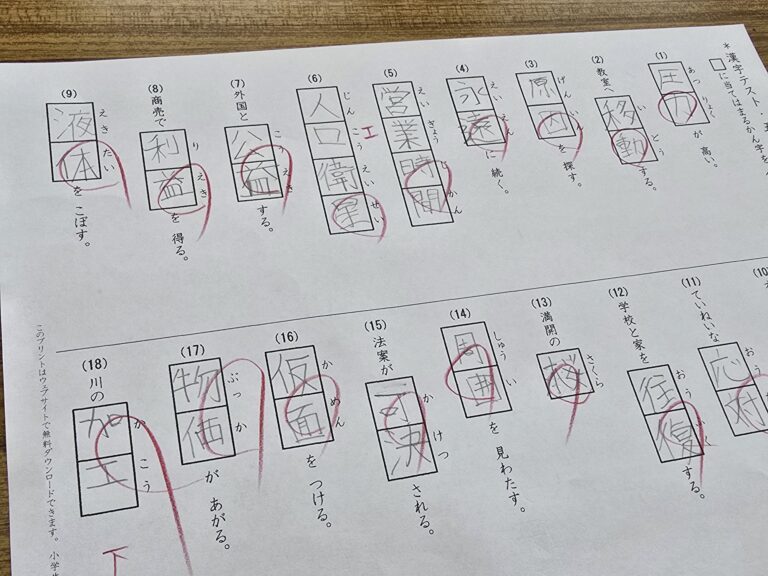 *漢字テスト・
□に当てはまるかん字を
(1)
圧力が 高い。
あつりょく
(2)
教室へ 移動する。
いどう
(3)
原因を 探す。
げんいん
(4)
永遠に 続く。
えいえん
(5)
営業時間
えいぎょうじかん
(6)
人口衛星
じんこうえいせい
工
(7)
外国と 公益する。
こうえき
(8)
商売で 利益を 得る。
りえき
(9)
液体を こぼす。
えきたい
(10)
(11)
ていねいな 応対
おう
(12)
学校と家を 往復する。
おうふく
(13)
満開の 桜
さくら
(14)
周囲を 見わたす。
しゅうい
(15)
法案が 可決される。
かけつ
(16)
仮面を つける。
かめん
(17)
物価が あがる。
ぶっか
(18)
川の 加
かこう
このプリントはウェブサイトで無料ダウンロードできます。 小学